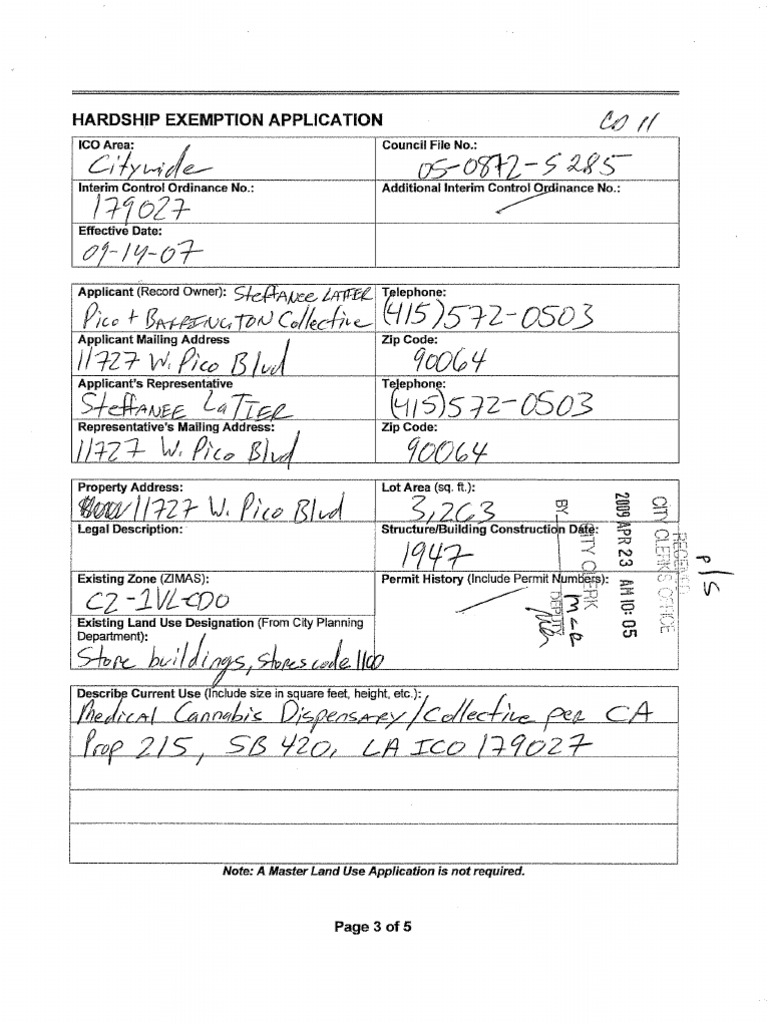 HARDSHIP EXEMPTION APPLICATION
CD 11
ICO Area:
Citywide
Council File No.:
05-0872-S285
Interim Control Ordinance No.:
179027
Additional Interim Control Ordinance No.:
Effective Date:
09-14-07
Applicant (Record Owner): Steffanee LATIER
Pico + BARRINGTON Collective
Telephone:
(415) 572-0503
Applicant Mailing Address
11727 W. Pico Blvd
Zip Code:
90064
Applicant's Representative
Steffanee LaTIER
Telephone:
(415) 572-0503
Representative's Mailing Address:
11727 W. Pico Blvd
Zip Code:
90064
Property Address:
11727 W. Pico Blvd
Lot Area (sq. ft.):
3,263
Legal Description:
Structure/Building Construction Date:
1947
Existing Zone (ZIMAS):
C2-1VL-CDO
Permit History (Include Permit Numbers):
Existing Land Use Designation (From City Planning
Department):
Store buildings, stores code 1100
RECEIVED
CITY CLERK'S OFFICE
2009 APR 23 AM 10:05
CITY CLERK
BY
DEPUTY
p/s
Describe Current Use (Include size in square feet, height, etc.):
Medical Cannabis Dispensary/Collective per CA
Prop 215, SB 420, LA ICO 179027
Note: A Master Land Use Application is not required.
Page 3 of 5